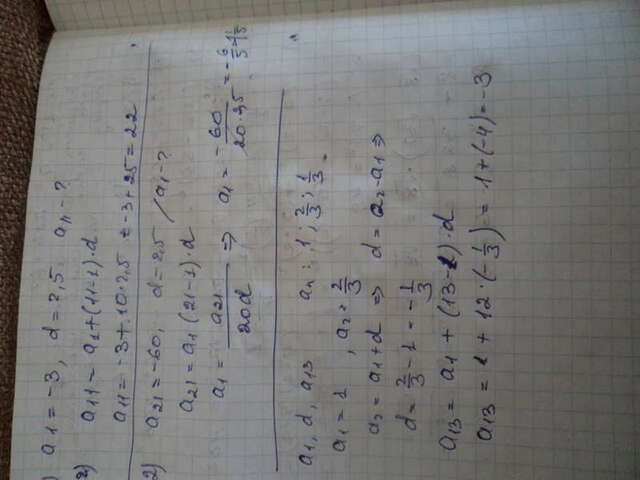 a₁ = -3, d = 2,5 a₁₁ - ?
2) a₁₁ = a₁ + (11-1)·d
a₁₁ = -3 + 10·2,5 = -3 + 25 = 22
2) a₂₁ = -60, d = 2,5 / a₁ - ?
a₂₁ = a₁ (21-1)·d
a₁ = a₂₁/20d ⇒ a₁ = -60/20·2,5 = -6/5
a₁, d, a₁₃ aₙ: 1; 2/3; 1/3.
a₁ = 1, a₂ = 2/3
a₂ = a₁ + d ⇒ d = a₂ - a₁ ⇒
d = 2/3 - 1 = -1/3
a₁₃ = a₁ + (13-1)·d
a₁₃ = 1 + 12·(-1/3) = 1 + (-4) = -3